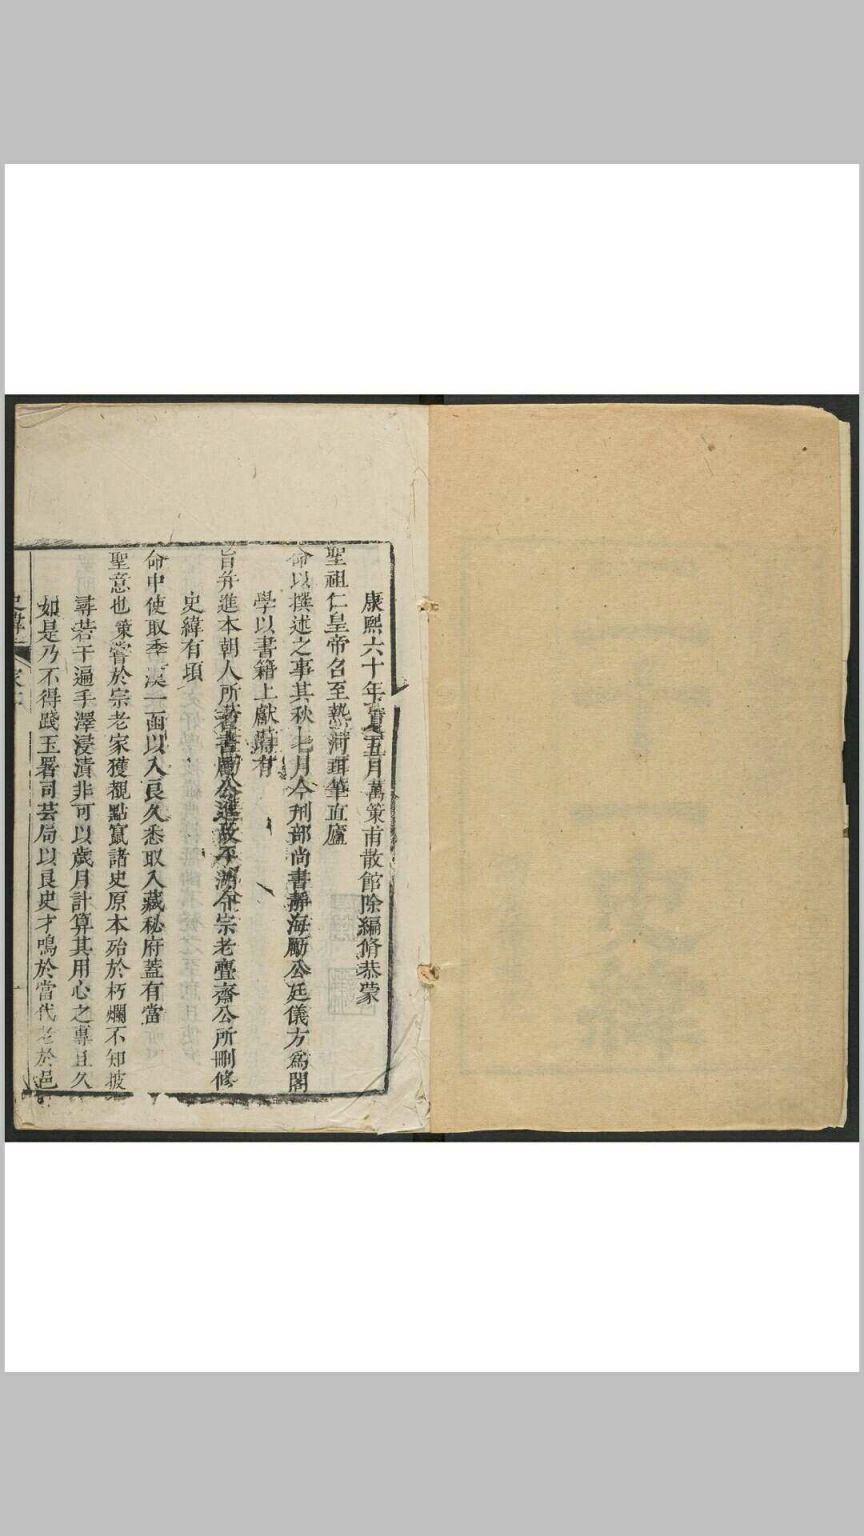 康熙六十年夏五月萬策甫散館除編脩恭蒙
聖祖仁皇帝召至熱河珥筆直廬
命以撰述之事其秋七月今刑部尚書靜海勵公廷儀方為閣
學以書籍上獻請有
旨并進本朝人所著書勵公進故平湖令宗老壐齋公所刪修
史緯有頃
命中使取季漢一函以入良久悉取入藏秘府蓋有當
聖意也策嘗於宗老家獲觀點竄諸史原本殆於朽爛不知披
尋若干遍手澤浸漬非可以歲月計算其用心之專且久
如是乃不得踐玉署司芸局以良史才鳴於當代老於邑
史緯